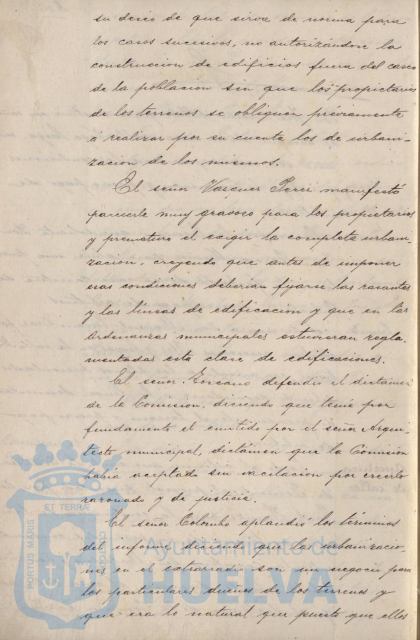 su deseo de que sirva de norma para
los casos sucesivos, no autorizándose la
construcción de edificios fuera del casco
de la población sin que los propietarios
de los terrenos se obliguen préviamente
á realizar por su cuenta los de urbani-
zación de los mismos.
El señor Vazquez Perez manifestó
parecerle muy gravoso para los propietarios
y prematuro el exigir la completa urbani-
zación, creyendo que antes de imponer
esas condiciones deberían fijarse las rasantes
y las líneas de edificación y que en las
Ordenanzas municipales estuvieran regla-
mentadas esta clase de edificaciones.
El señor defendió el dictamen
de la Comisión, diciendo que tenía por
fundamento el emitido por el señor Arqui-
tecto municipal, dictámen que la Comisión
había aceptado sin vacilación por creerlo
razonado y de justicia.
El señor Colombo aplaudió los términos
del informe diciendo que las urbanizacio-
nes en el extrarradio son un negocio para
los particulares dueños de los terrenos y
que era lo natural que puesto que ellos
PORTUS MARIS ET TERRAE CUSTODIA
Ayuntamiento de
HUELVA